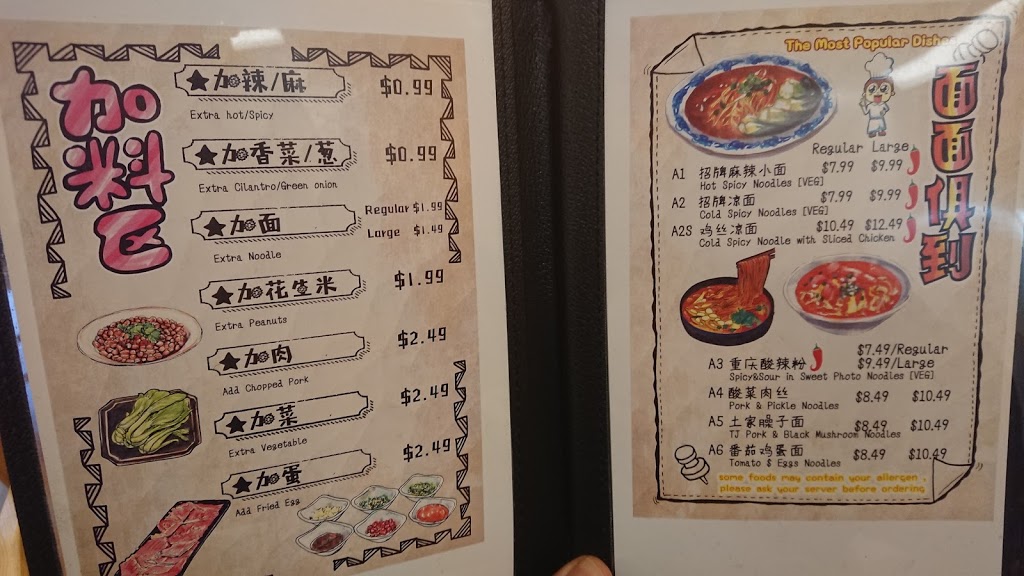 加料区
★加辣/麻 $0.99
Extra hot/Spicy
★加香菜/葱 $0.99
Extra Cilantro/Green onion
★加面 Regular $1.99
Large $1.49
Extra Noodle
★加花查米 $1.99
Extra Peanuts
★加肉 $2.49
Add Chopped Pork
★加菜 $2.49
Extra Vegetable
★加蛋 $2.49
Add Fried Egg
The Most Popular Dishes
面面俱到
Regular Large
A1 招牌麻辣小面 $7.99 $9.99
Hot Spicy Noodles [VEG]
A2 招牌凉面 $7.99 $9.99
Cold Spicy Noodles [VEG]
A2S 鸡丝凉面 $10.49 $12.49
Cold Spicy Noodle with Sliced Chicken
A3 重庆酸辣粉 $7.49/Regular
$9.49/Large
Spicy&Sour in Sweet Photo Noodles [VEG]
A4 酸菜肉丝 $8.49 $10.49
Pork & Pickle Noodles
A5 土家臊子面 $8.49 $10.49
TJ Pork & Black Mushroom Noodles
A6 番茄鸡蛋面 $8.49 $10.49
Tomato $ Eggs Noodles
some foods may contain your allergen ,
please ask your server before ordering